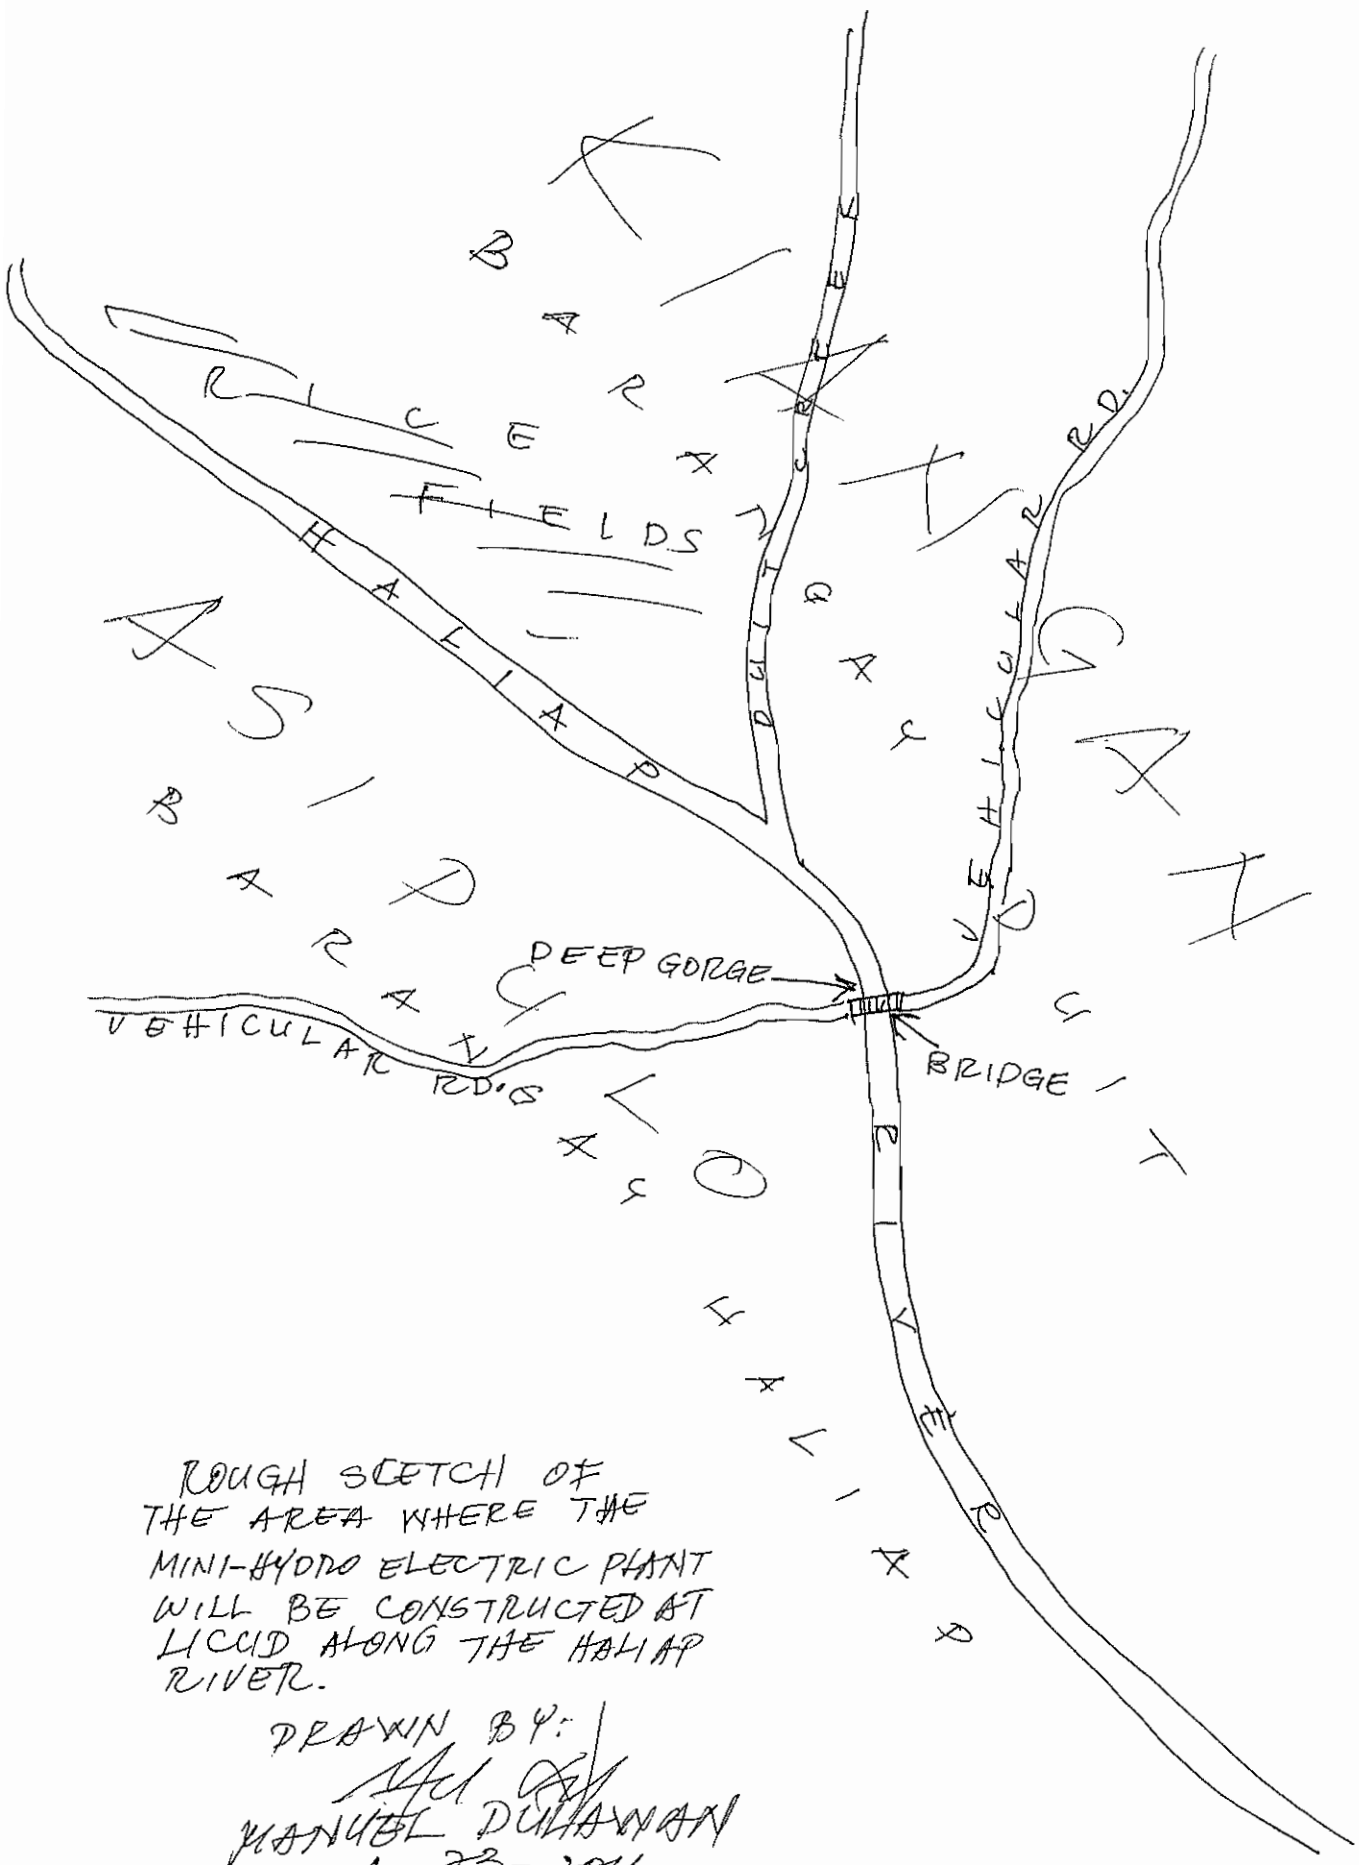 KIANGAN
BARANGAY DUIT
DUIT CREEK
VEHICULAR RD.
RICE
FIELDS
HALIAP RIVER
ASIPULO
BARANGAY HALIAP
DEEP GORGE
VEHICULAR RD.
BRIDGE
ROUGH SKETCH OF
THE AREA WHERE THE
MINI-HYDRO ELECTRIC PLANT
WILL BE CONSTRUCTED AT
LICUD ALONG THE HALIAP
RIVER.
DRAWN BY:
MANUEL DULAWAN